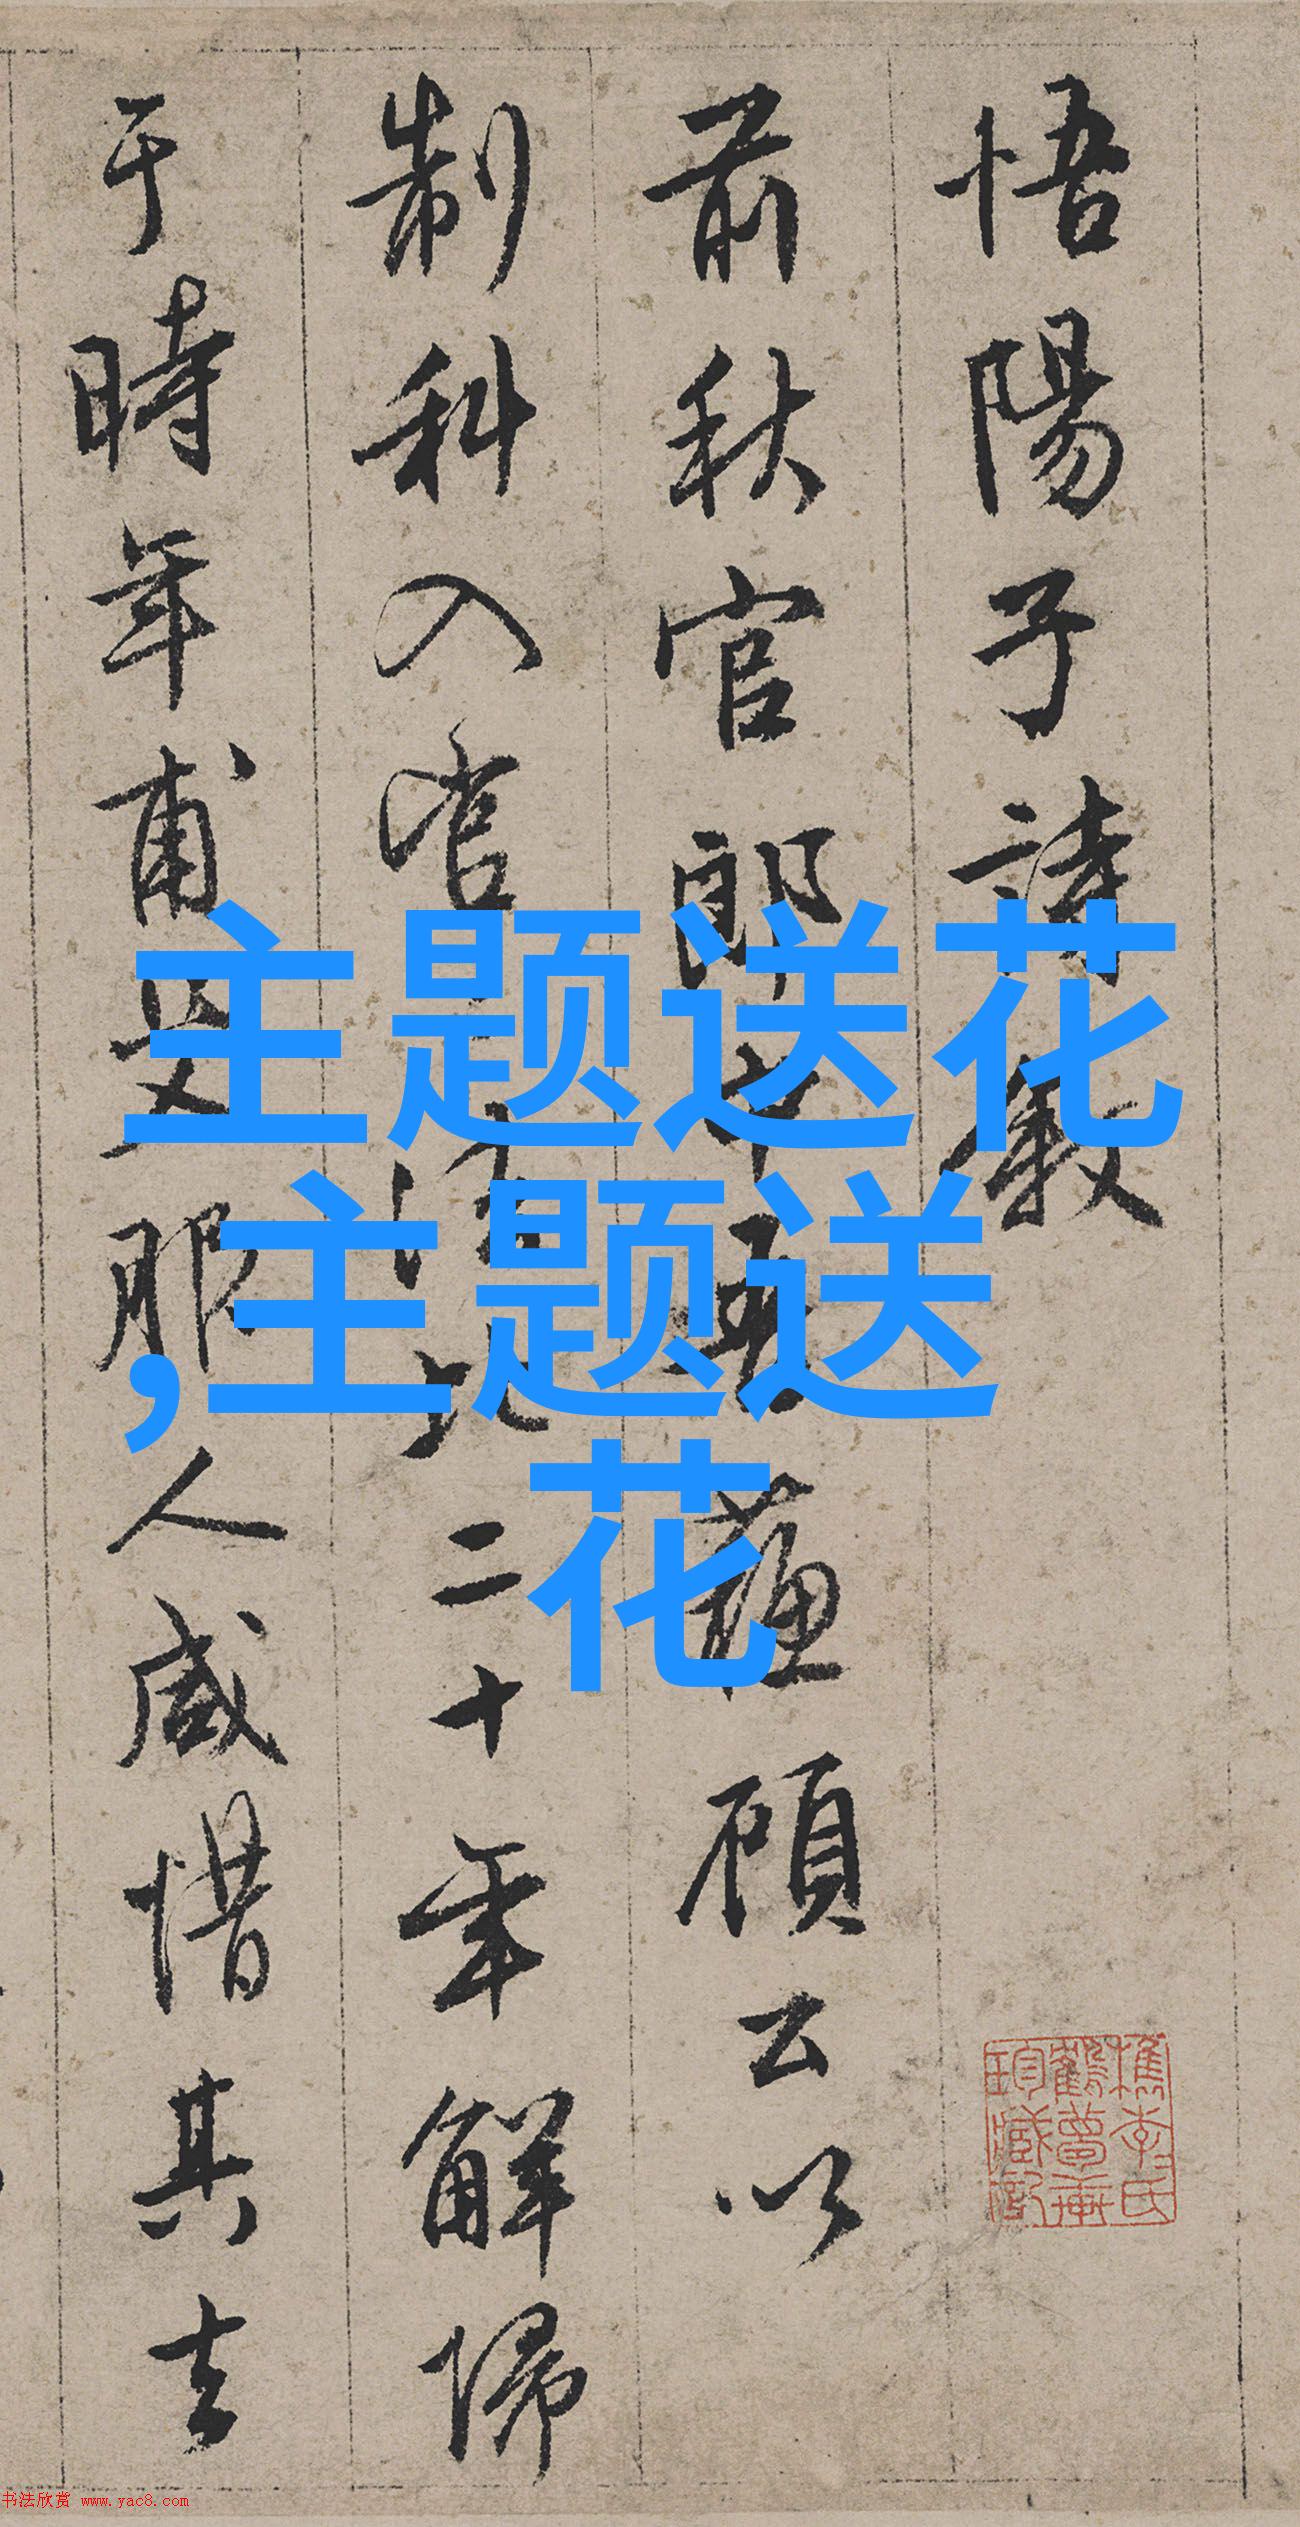 悟陽子詩敘
前秋官郎
顧公以
制科入官
二十年解歸
于時年甫
人咸惜其去
主题送花
,主题送
花
书法欣赏 www.yac8.com